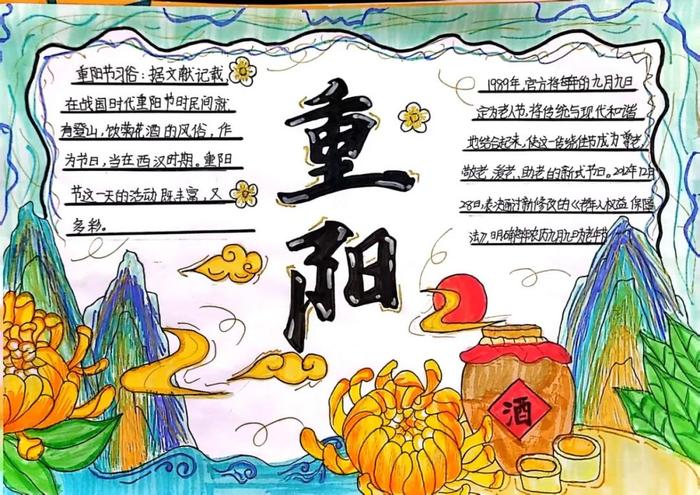 重阳节习俗：据文献记载，
在战国时代重阳节时民间就
有登山，饮菊花酒的风俗，作
为节日，当在西汉时期。重阳
节这一天的活动既丰富，又
多彩。
重
阳
1989年，官方将每年的九月九日
定为老人节，将传统与现代和谐
地结合起来，使这一传统佳节成为尊老，
敬老，爱老，助老的新式节日。2012年12月
28日，表决通过新修改的《老年人权益保障
法》，明确每年农历九月九日为老年节
酒